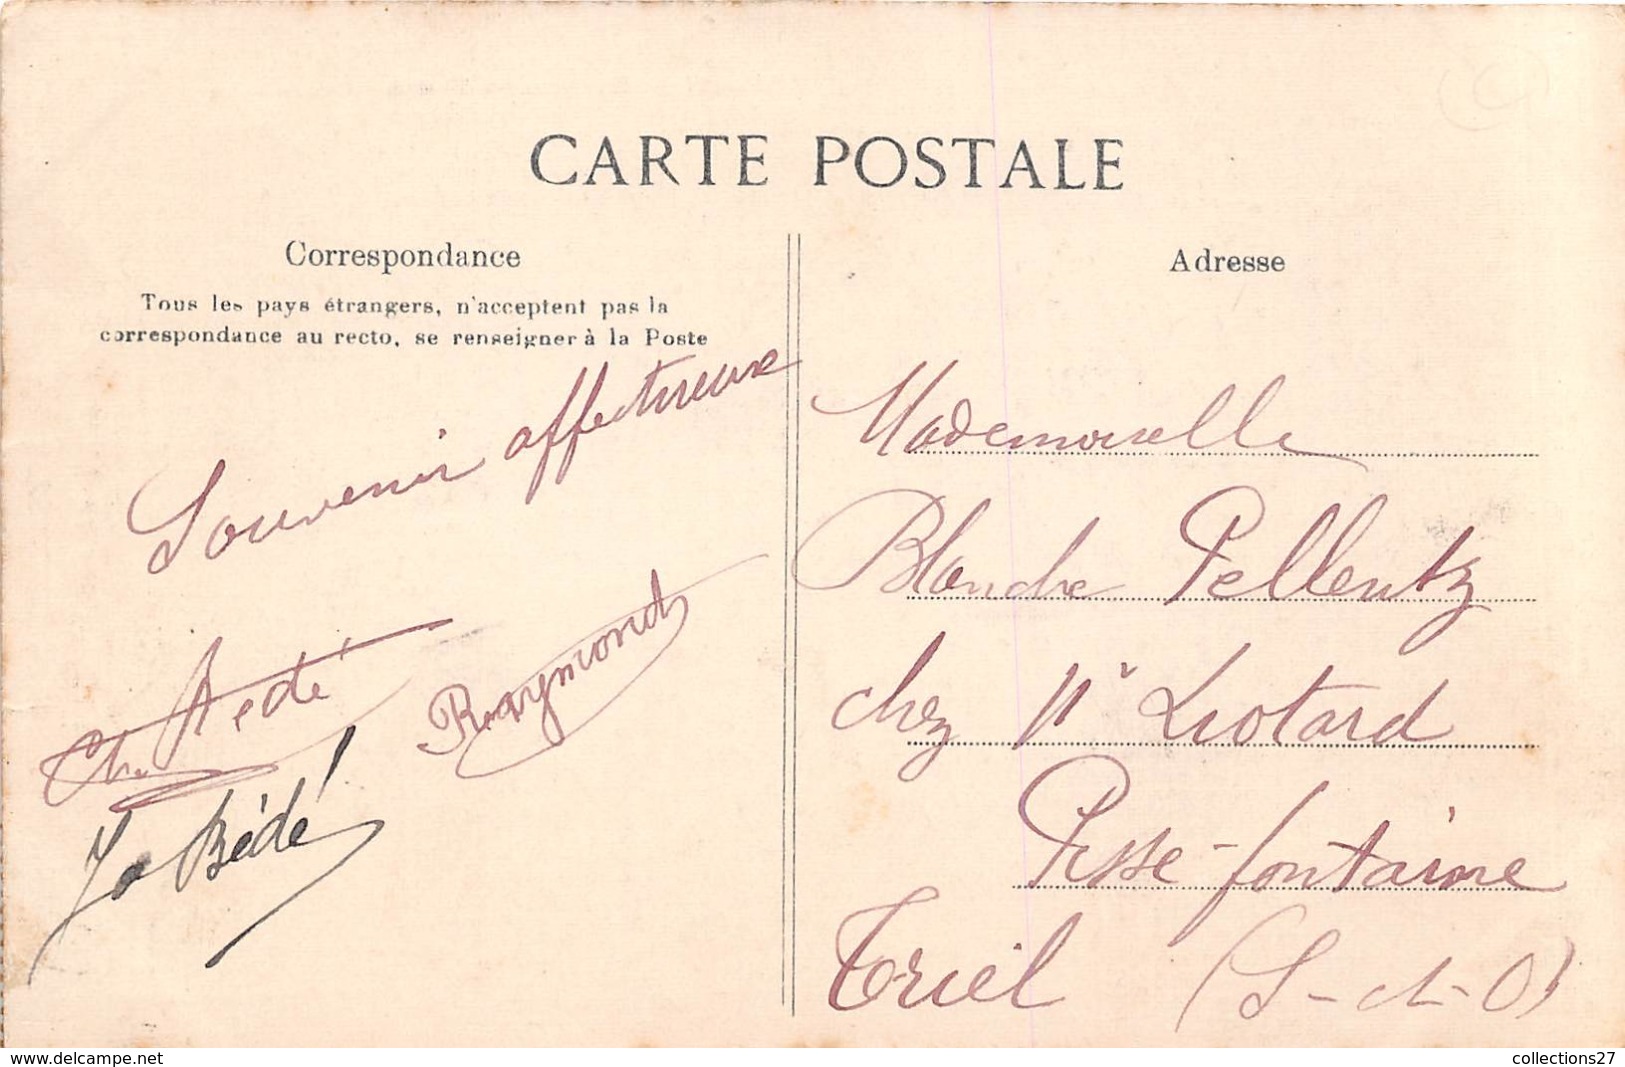 CARTE POSTALE
Correspondance
Tous les pays étrangers, n'acceptent pas la
correspondance au recto, se renseigner à la Poste
Souvenir affectueux
Ch. Aedé
Raymond
Jo Bédé
Adresse
Mademoiselle
Blanche Pellentz
chez Mr Liotard
Pisse-fontaine
Triel (S-et-O)
www.delcampe.net
collections27